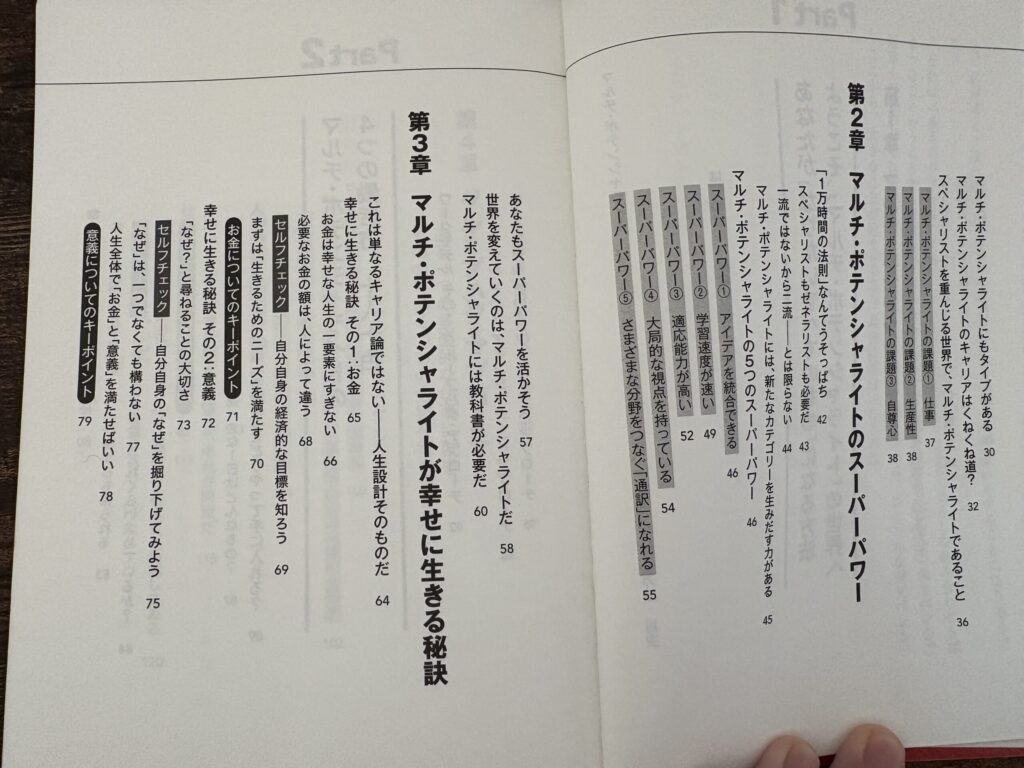 マルチ・ポテンシャライトにもタイプがある 30
マルチ・ポテンシャライトのキャリアはくねくね道? 32
スペシャリストを重んじる世界で、マルチ・ポテンシャライトであること 36
マルチ・ポテンシャライトの課題① 仕事 37
マルチ・ポテンシャライトの課題② 生産性 38
マルチ・ポテンシャライトの課題③ 自尊心 38
第2章 マルチ・ポテンシャライトのスーパーパワー
「1万時間の法則」なんてうそっぱち 42
スペシャリストもゼネラリストも必要だ 43
一流ではないから二流——とは限らない 44
マルチ・ポテンシャライトには、新たなカテゴリーを生みだす力がある 45
マルチ・ポテンシャライトの5つのスーパーパワー 46
スーパーパワー① アイデアを統合できる 46
スーパーパワー② 学習速度が速い 49
スーパーパワー③ 適応能力が高い 52
スーパーパワー④ 大局的な視点を持っている 54
スーパーパワー⑤ さまざまな分野をつなぐ「通訳」になれる 55
あなたもスーパーパワーを活かそう 57
世界を変えていくのは、マルチ・ポテンシャライトだ 58
マルチ・ポテンシャライトには教科書が必要だ 60
第3章 マルチ・ポテンシャライトが幸せに生きる秘訣
これは単なるキャリア論ではない——人生設計そのものだ 64
幸せに生きる秘訣 その1:お金 65
お金は幸せな人生の一要素にすぎない 66
必要なお金の額は、人によって違う 68
セルフチェック——自分自身の経済的な目標を知ろう 69
まずは「生きるためのニーズ」を満たす 70
お金についてのキーポイント 71
幸せに生きる秘訣 その2:意義 72
「なぜ?」と尋ねることの大切さ 73
セルフチェック——自分自身の「なぜ」を掘り下げてみよう 75
「なぜ」は、一つでなくても構わない 77
人生全体で「お金」と「意義」を満たせばいい 78
意義についてのキーポイント 79